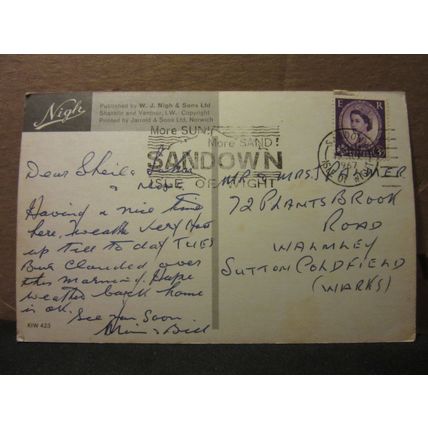 Nigh
Published by W. J. Nigh & Sons Ltd
Shanklin and Ventnor, I.W. Copyright
Printed by Jarrold & Sons Ltd, Norwich
More SUN!
More SAND!
SANDOWN
ISLE OF WIGHT
E R
1967
Dear Sheila
Having a nice time
here, weather very Hot
up till to day TUES
But Clouded over
this morning. Hope
weather back home
is ok.
See you Soon.
& Bill
MR & MRS PALMER
72 PLANTS BROOK
ROAD
WALMLEY
SUTTON COLDFIELD
(WARKS)
KIW 423